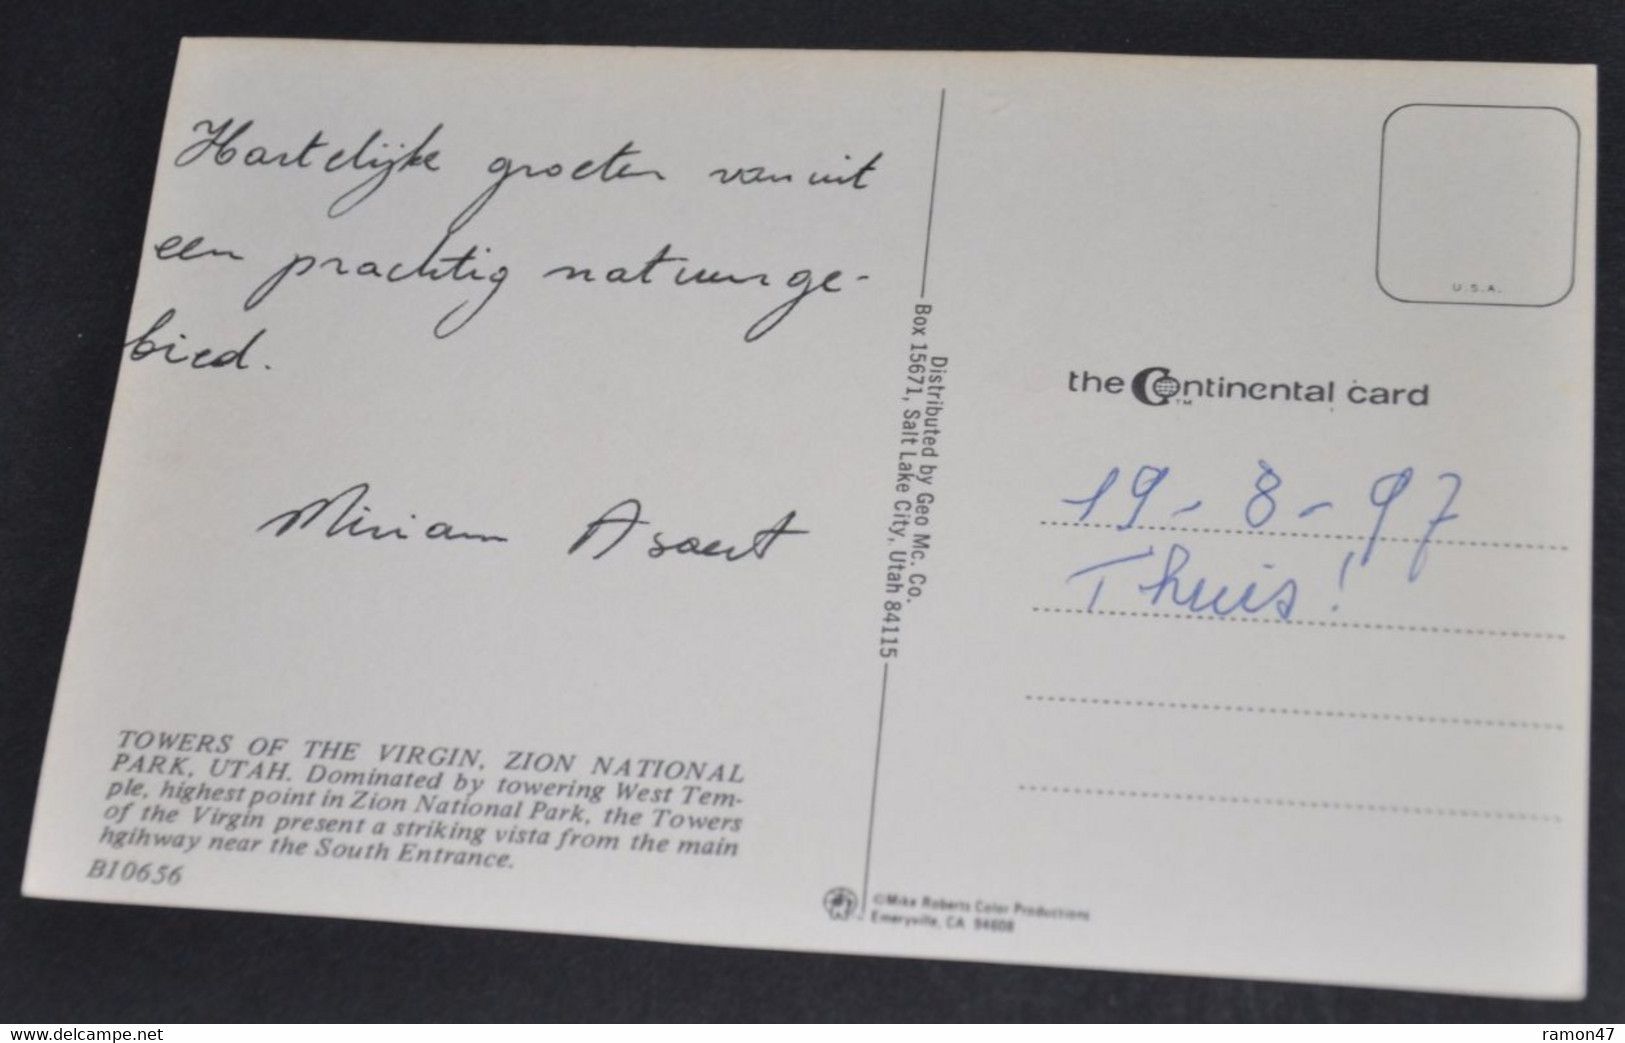 Hartelijke groeten vanuit
een prachtig natuurge-
bied.
Miriam Asaert
TOWERS OF THE VIRGIN, ZION NATIONAL
PARK, UTAH. Dominated by towering West Tem-
ple, highest point in Zion National Park, the Towers
of the Virgin present a striking vista from the main
hgihway near the South Entrance.
B10656
Distributed by Geo Mc. Co.
Box 15671, Salt Lake City, Utah 84115
©Mike Roberts Color Productions
Emeryville, CA 94608
U.S.A.
the Continental card
TM
19-8-97
Thuis!
www.delcampe.net
ramon47